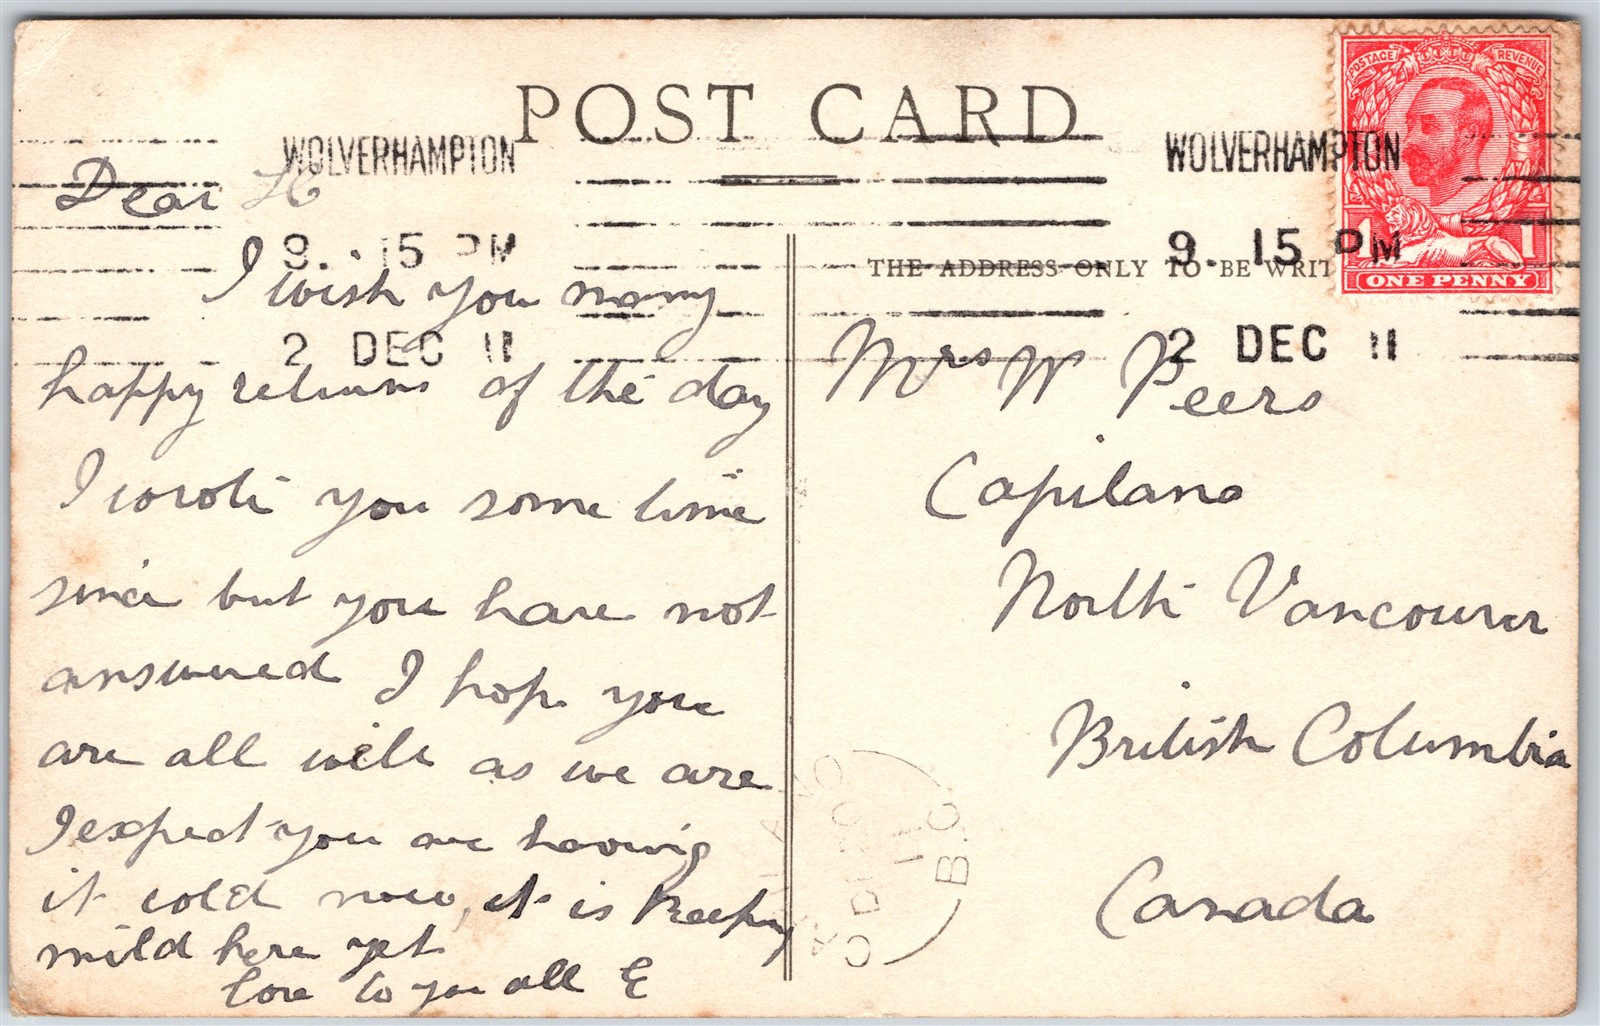 POST CARD
WOLVERHAMPTON
9. 15 PM
2 DEC 11
WOLVERHAMPTON
9. 15 PM
2 DEC 11
POSTAGE REVENUE
1 1
ONE PENNY
THE ADDRESS ONLY TO BE WRIT
Dear H
I wish you many
happy returns of the day
I wrote you some time
since but you have not
answered I hope you
are all well as we are
I expect you are having
it cold now, it is keeping
mild here yet
love to you all E
Mrs W Peers
Capilano
North Vancouver
British Columbia
Canada
DE
11
B.C.